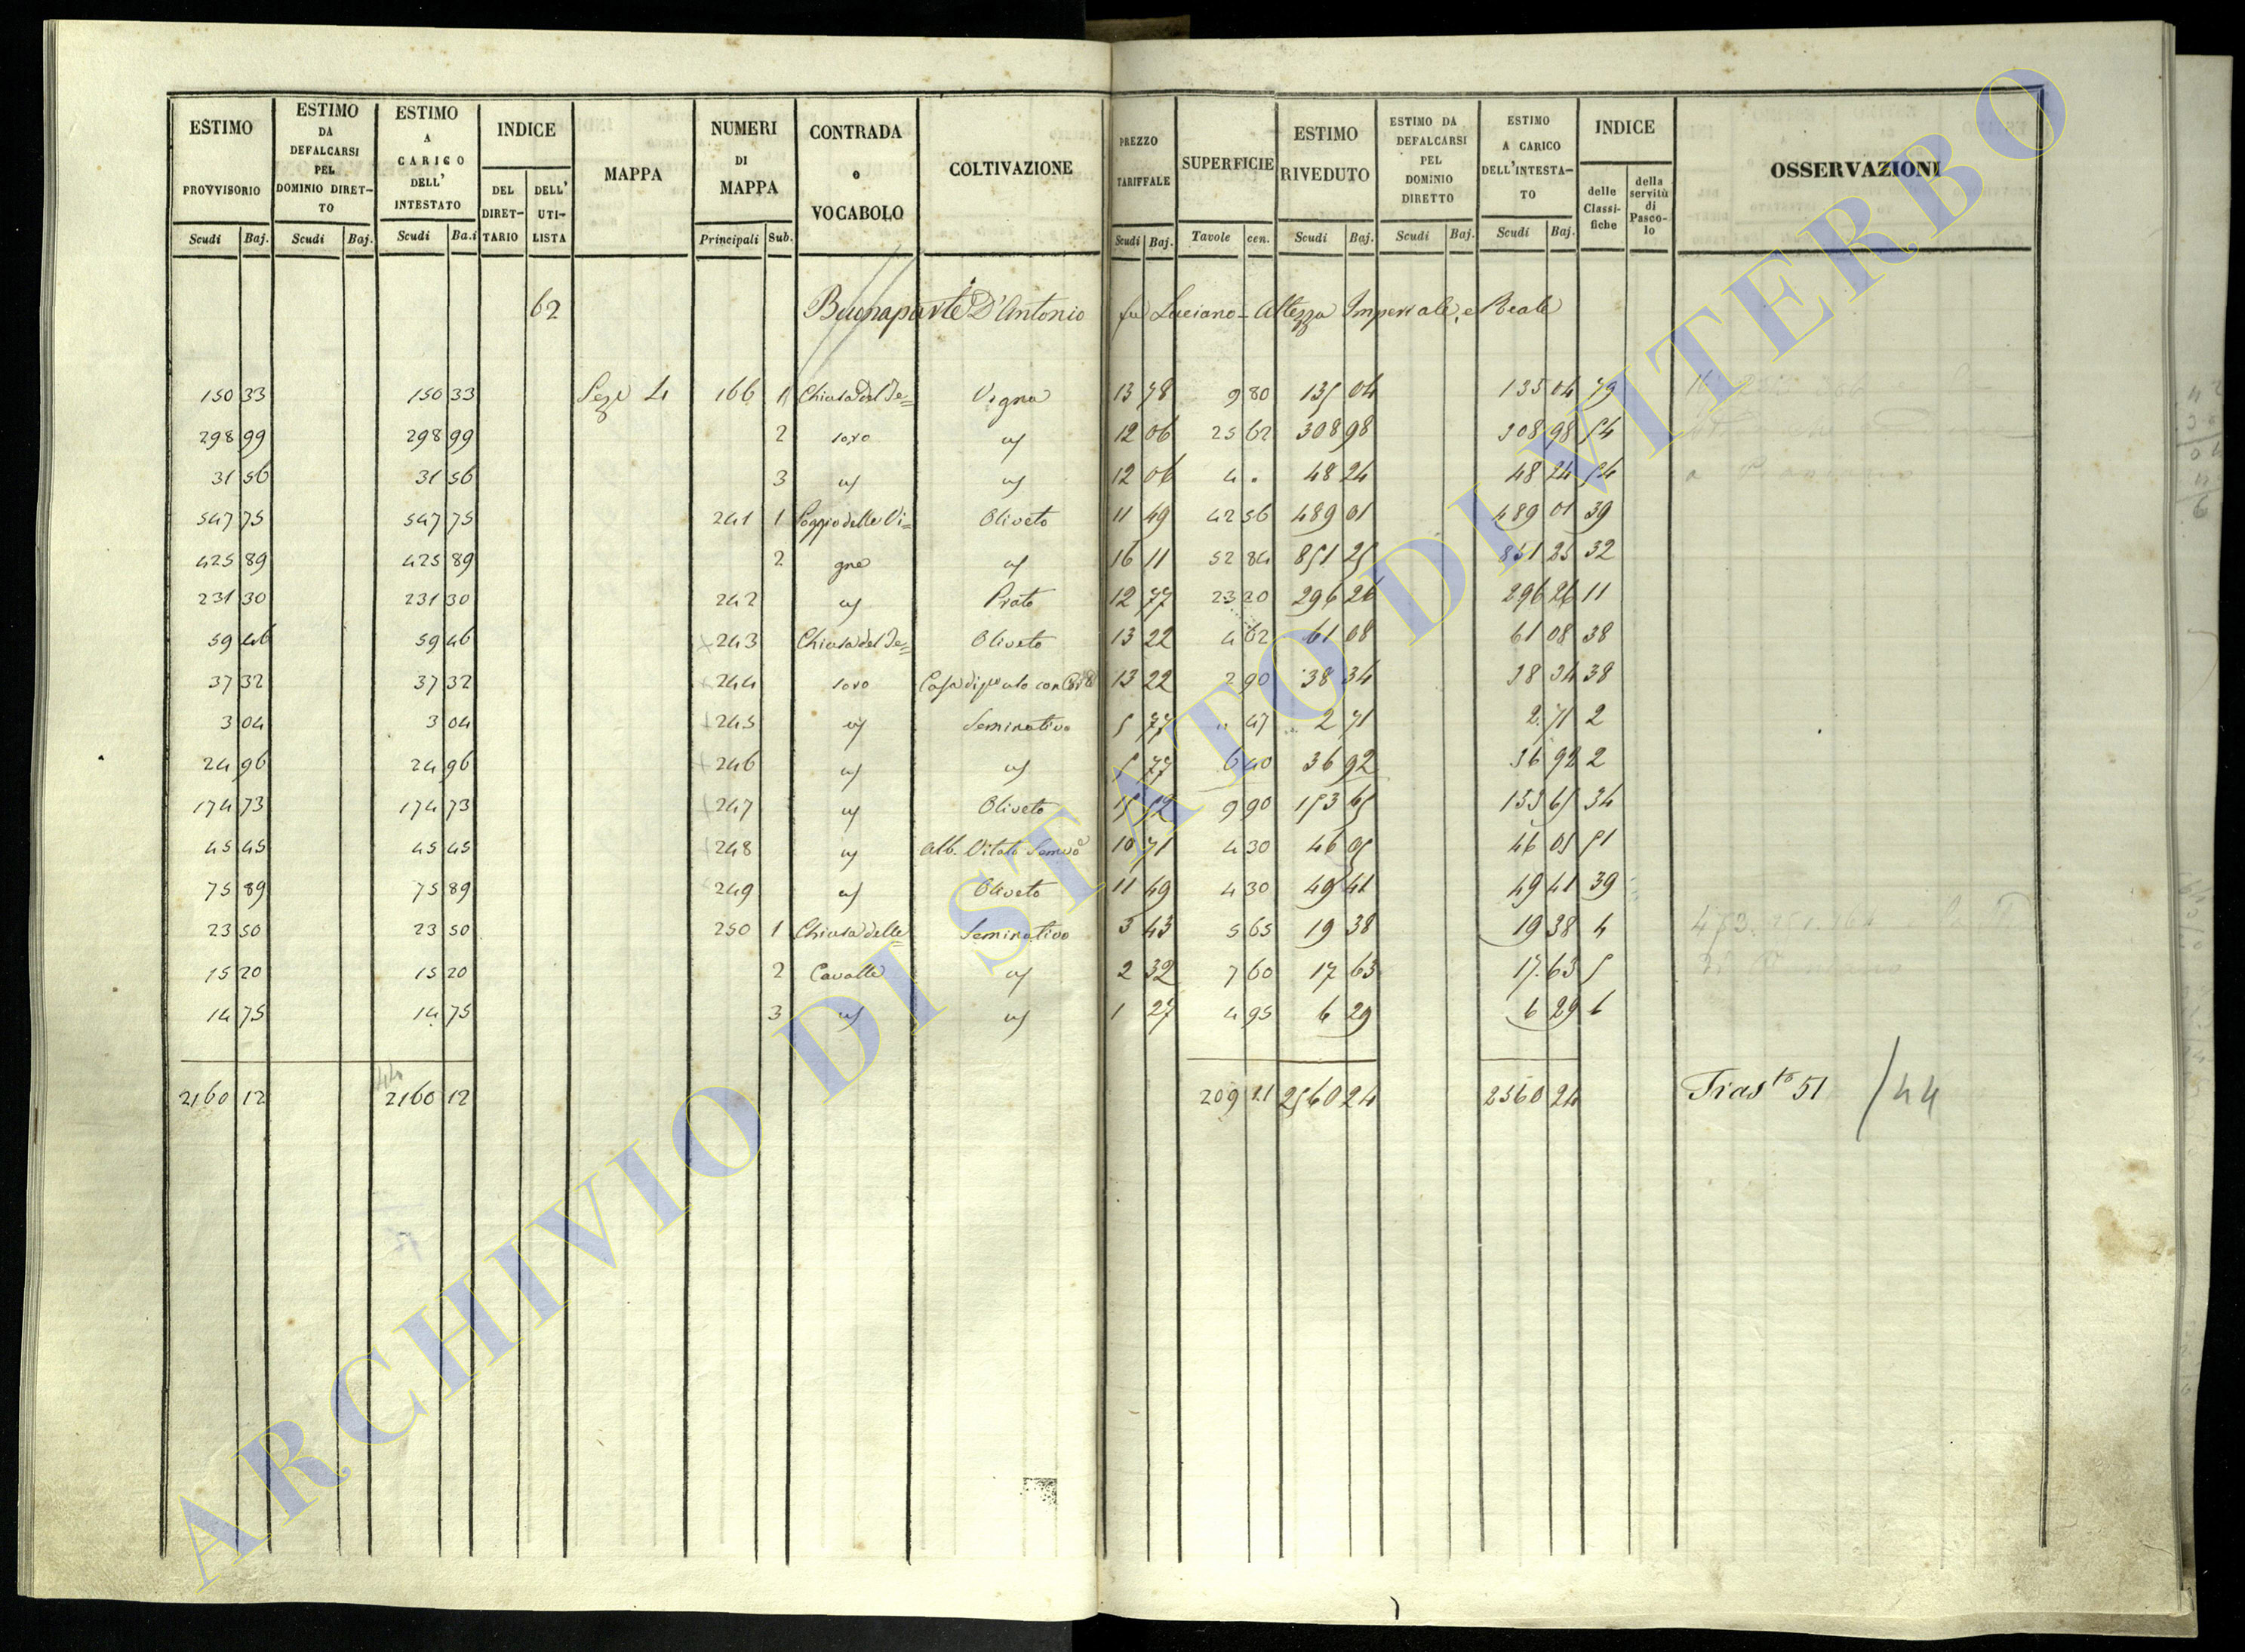 ESTIMO PROVVISORIO Scudi Baj.
ESTIMO DA DEFALCARSI PEL DOMINIO DIRET-TO Scudi Baj.
ESTIMO A CARICO DELL' INTESTATO Scudi Ba.i
INDICE DEL DIRET-TARIO DELL' UTI-LISTA
MAPPA
NUMERI DI MAPPA Principali Sub.
CONTRADA o VOCABOLO
COLTIVAZIONE
PREZZO TARIFFALE Scudi Baj.
SUPERFICIE Tavole cen.
ESTIMO RIVEDUTO Scudi Baj.
ESTIMO DA DEFALCARSI PEL DOMINIO DIRETTO Scudi Baj.
ESTIMO A CARICO DELL'INTESTA-TO Scudi Baj.
INDICE delle Classi-fiche della servitù di Pasco-lo
OSSERVAZIONI
62 Buonaparte D'Antonio fu Luciano - Altezza Imperiale, e Reale
150 33 150 33 Seze 4 166 1 Chiusa del Te= Vigna 13 78 9 80 135 04 135 04 79
298 99 298 99 2 soro uf 12 06 25 62 308 98 308 98 54
31 56 31 56 3 uf uf 12 06 4 . 48 24 48 24 54
547 75 547 75 241 1 Poggio delle Vi= Oliveto 11 49 42 56 489 01 489 01 39
425 89 425 89 2 gne uf 16 11 52 84 851 25 851 25 32
231 30 231 30 242 uf Prato 12 77 23 20 296 26 296 26 11
59 46 59 46 243 Chiusa del Te= Oliveto 13 22 4 62 61 08 61 08 38
37 32 37 32 244 soro Casa di 13 22 2 90 38 34 38 34 38
3 04 3 04 245 uf Seminativo 5 77 " 47 2 71 2 71 2
24 96 24 96 246 uf uf 5 77 6 40 36 92 36 92 2
174 73 174 73 247 uf Oliveto 15 52 9 90 153 65 153 65 34
45 45 45 45 248 uf Alb. Vitato 10 71 4 30 46 05 46 05 51
75 89 75 89 249 uf Oliveto 11 49 4 30 49 41 49 41 39
23 50 23 50 250 1 Chiusa delle= Seminativo 3 43 5 65 19 38 19 38 4
15 20 15 20 2 Cavalle uf 2 32 7 60 17 63 17.63 5
14 75 14 75 3 uf uf 1 27 4 95 6 29 6 29 6
2160 12 2160 12 209 21 2560 24 2560 24 Tras.to 51 / 44
ARCHIVIO DI STATO DI VITERBO